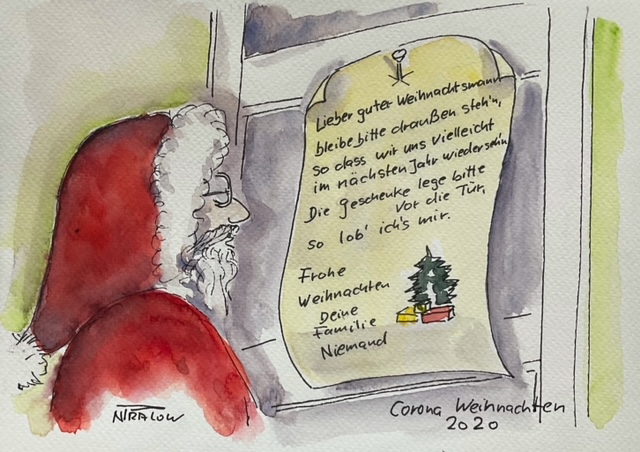 Lieber guter Weihnachtsmann
bleibe bitte draußen steh'n,
so dass wir uns vielleicht
im nächsten Jahr wiederseh'n
Die Geschenke lege bitte
vor die Tür,
so lob' ich's mir.
Frohe
Weihnachten
Deine
Familie
Niemand
NTRALOW
Corona Weihnachten
2020